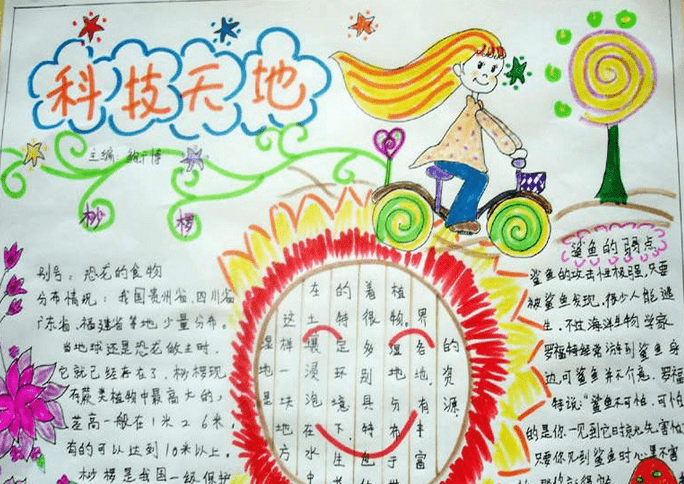 科技天地
主编:
桫椤
别号:恐龙的食物
分布情况:我国贵州省,四川省
广东省,福建省等地,少量分布。
当地球还是恐龙做主时,
它就已经存在了,桫椤现
存蕨类植物中最高大的,
茎高一般在1米~6米,
有的可以达到10米以上。
桫椤是我国一级保护
湿地是
这样一块地方
在土壤浸泡在水中
的特定环境下生
着很多别具特色
植物,湿地分布于
界各地,有丰富
的资源
鲨鱼的弱点
鲨鱼的攻击性极强,只要
被鲨鱼发现,很少人能逃
生,不过海洋生物学家
罗福特经常游到鲨鱼身
边,可鲨鱼并不介意,罗福
特说:“鲨鱼不可怕,可怕
的是你一见到它时害怕
只要你见到鲨鱼时心里不害